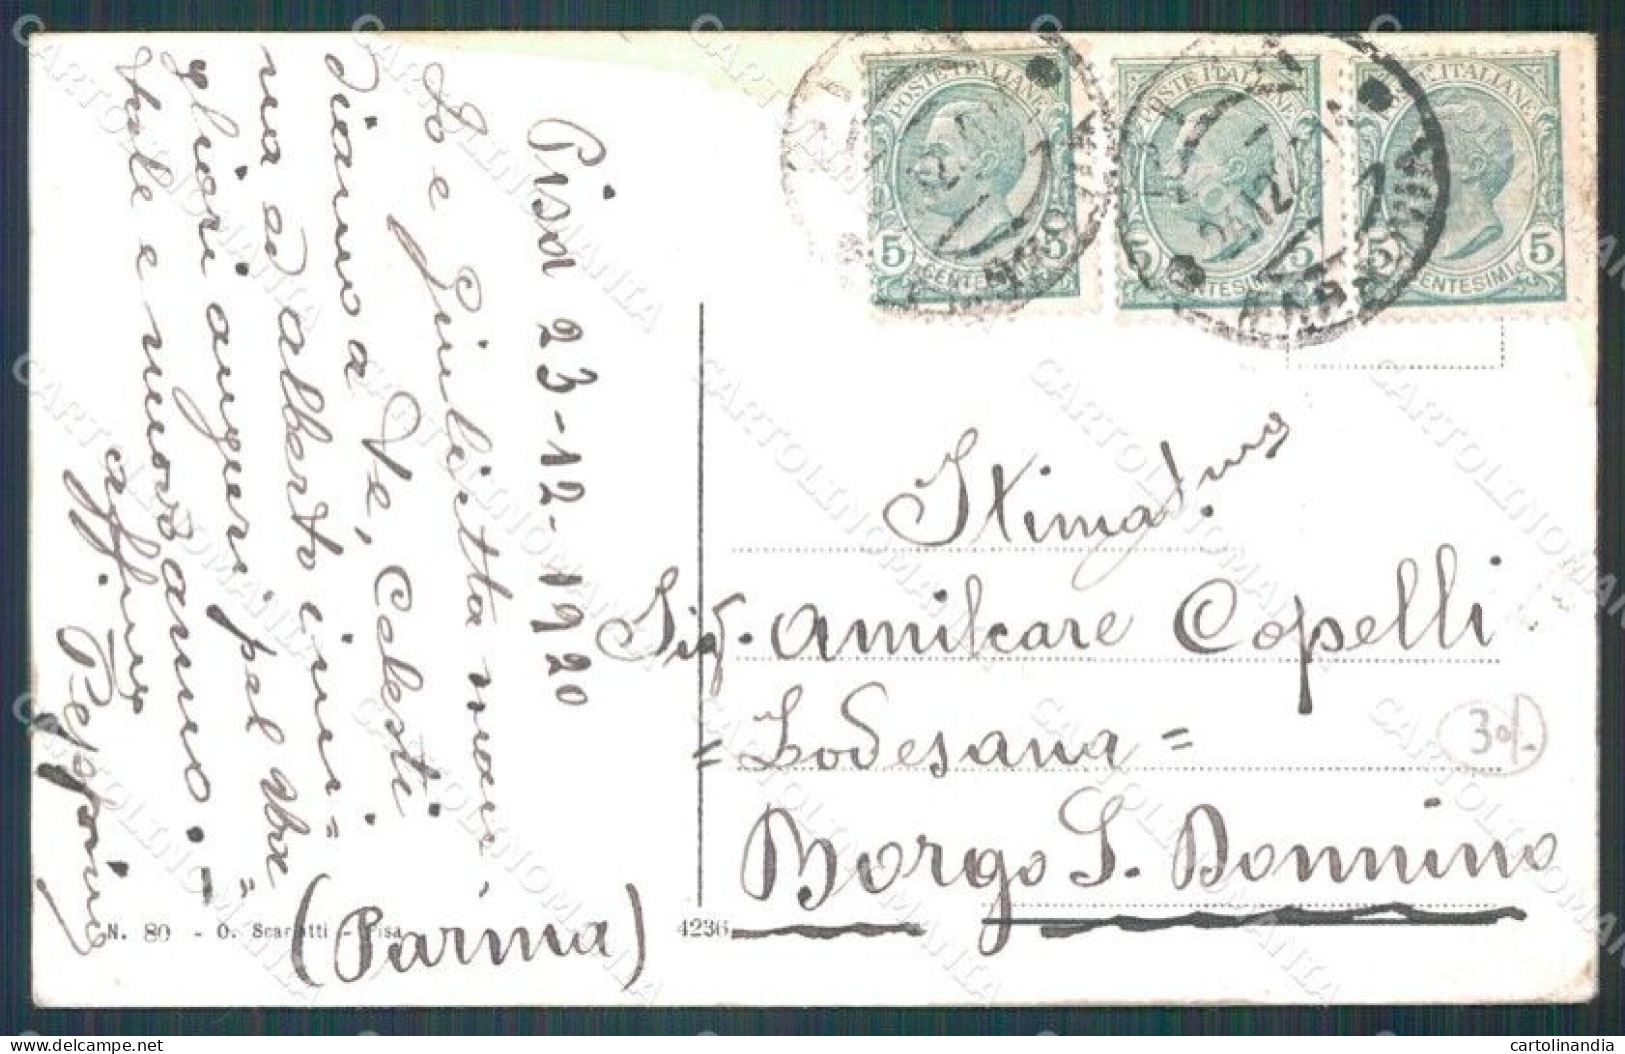 Pisa 23-12-1920
Io e Giulietta man-
diamo a Ve, Celesti
na ed Alberto i mi=
gliori auguri pel Na=
tale e nuovo anno.-
aff.mo
Peppino
POSTE ITALIANE
5 CENTESIMI 5
POSTE ITALIANE
5 CENTESIMI 5
POSTE ITALIANE
5 CENTESIMI 5
23.12.20.14
Stima.mo
Sig. Amilcare Copelli
= Lodesana =
Borgo S. Donnino
(Parma)
30/-
N. 80 - O. Scarlatti - Pisa
4236
CARTOLINOMANIA
delcampe.net
cartolinandia